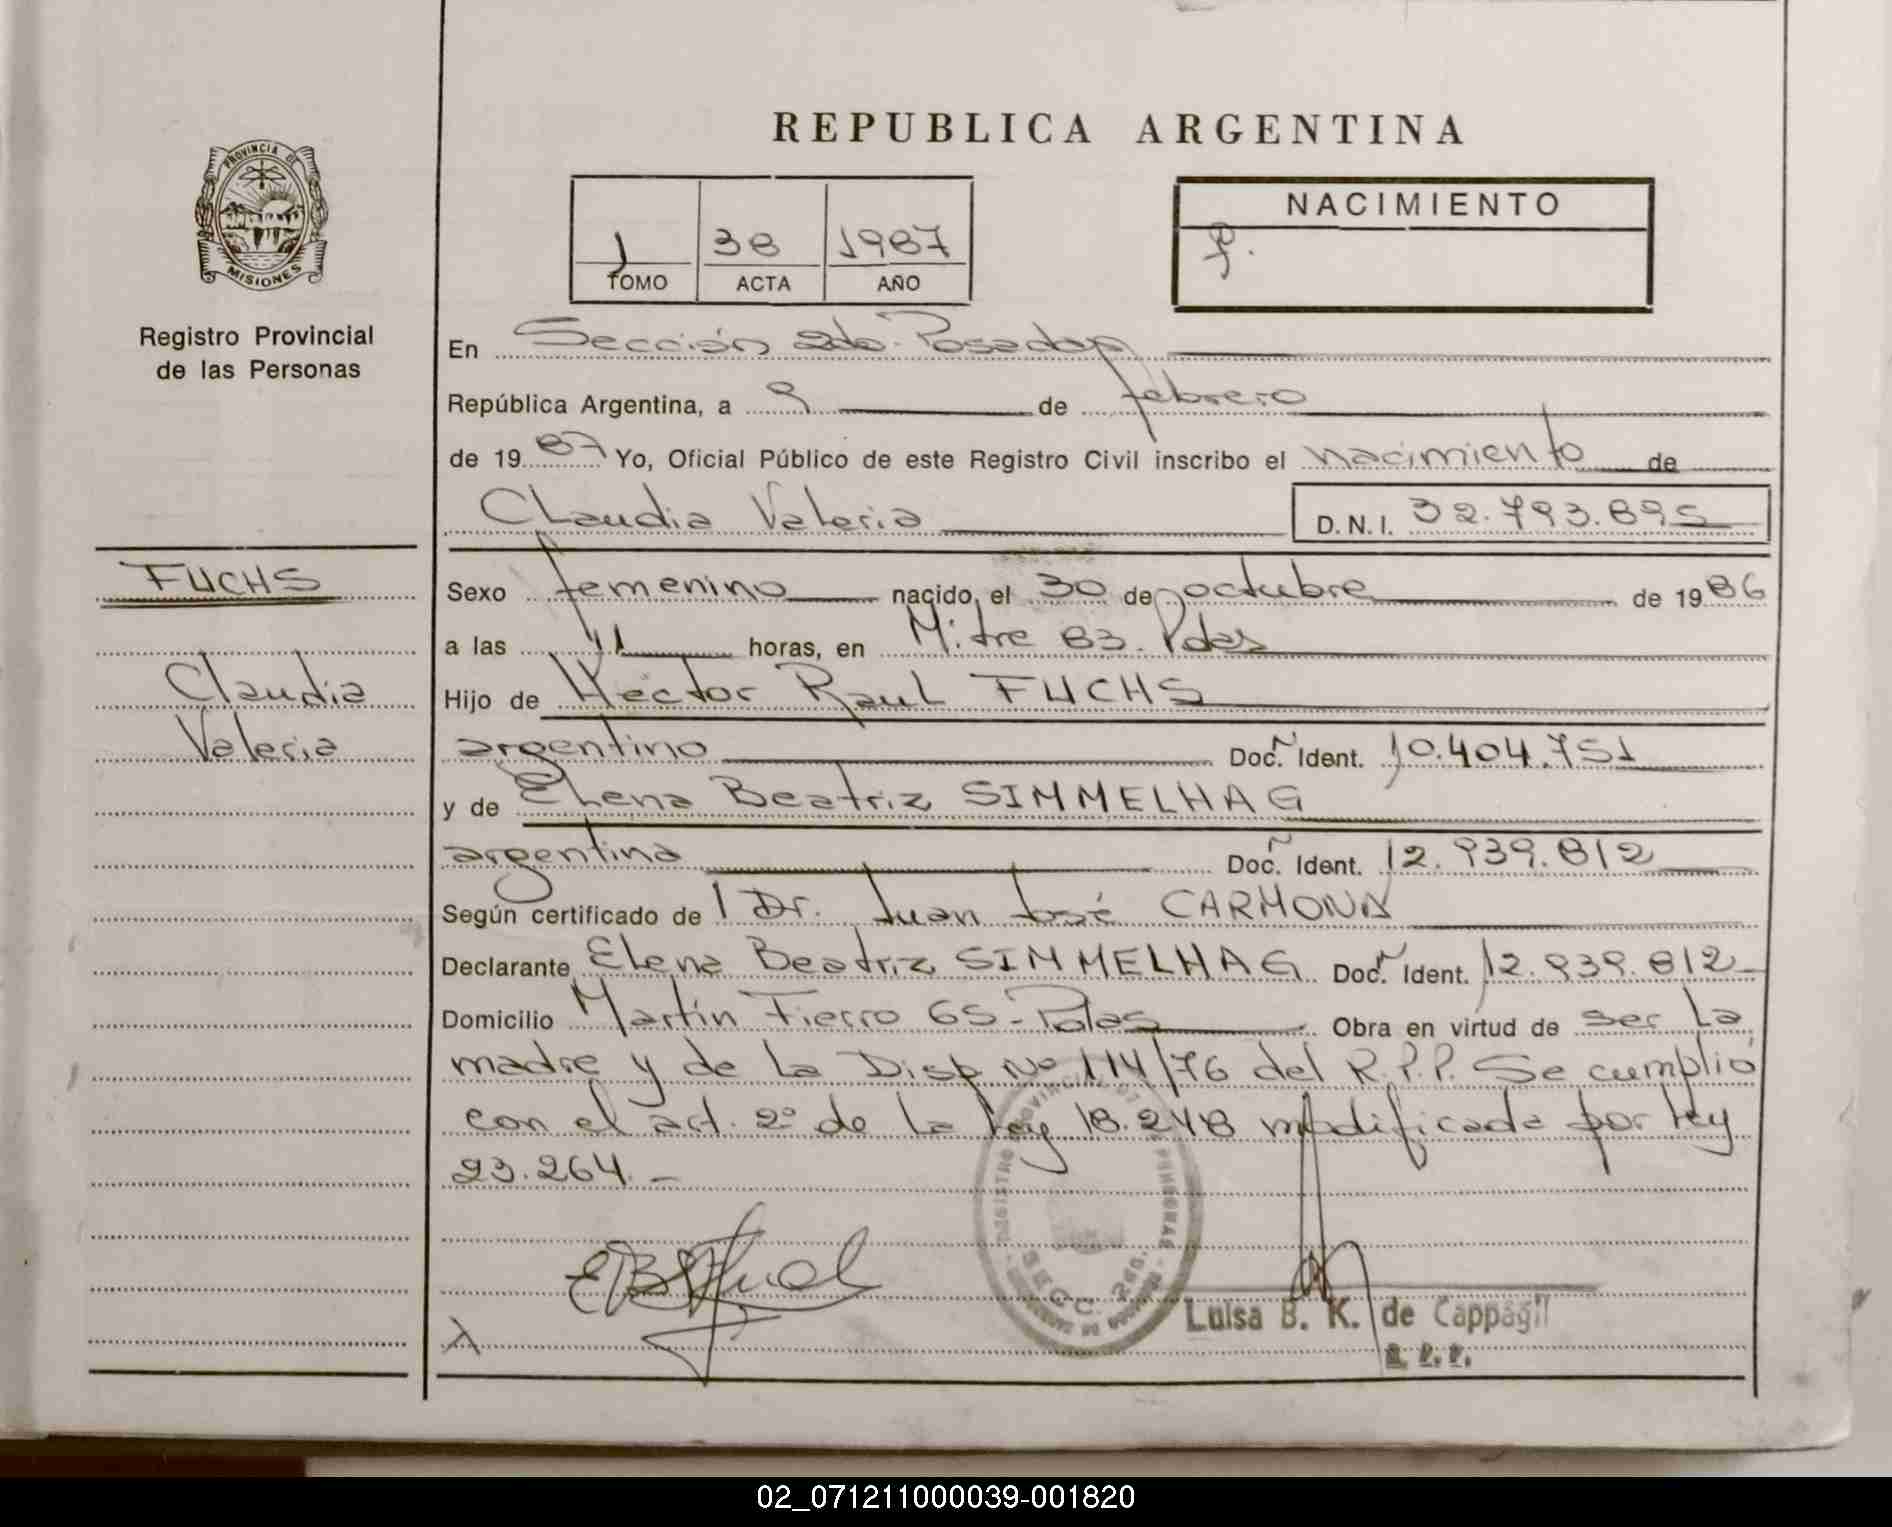 REPUBLICA ARGENTINA
PROVINCIA DE
MISIONES
Registro Provincial
de las Personas
1 38 1987
TOMO ACTA AÑO
NACIMIENTO
f.
En Sección 2da. Posadas
República Argentina, a 9 de febrero
de 1987 Yo, Oficial Público de este Registro Civil inscribo el nacimiento de
Claudia Valeria D.N.I. 32.793.895
FUCHS
Claudia
Valeria
Sexo femenino nacido, el 30 de octubre de 1986
a las 11 horas, en Mitre 83. Pdas
Hijo de Héctor Raul FUCHS
argentino Doc. Ident. 10.404.751
y de Elena Beatriz SIMMELHAG
argentina Doc. Ident. 12.939.812
Según certificado de Dr. Juan José CARMONA
Declarante Elena Beatriz SIMMELHAG Doc. Ident. 12.939.812
Domicilio Martín Fierro 65-Pdas Obra en virtud de ser la
madre y de la Disp Nº 114/76 del R.P.P. Se cumplió
con el art. 2º de la ley 18.248 modificada por ley
23.264.-
SECC. 2da.
Luisa B. K. de Cappagli
02_071211000039-001820